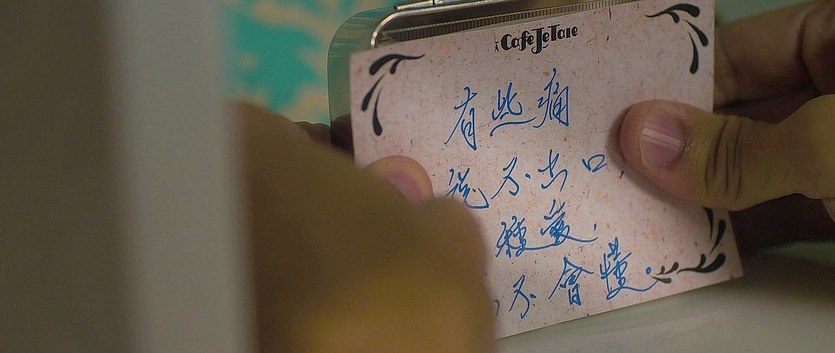 CafeJeTaie
有些痛
說不出口,
種
不會懂。